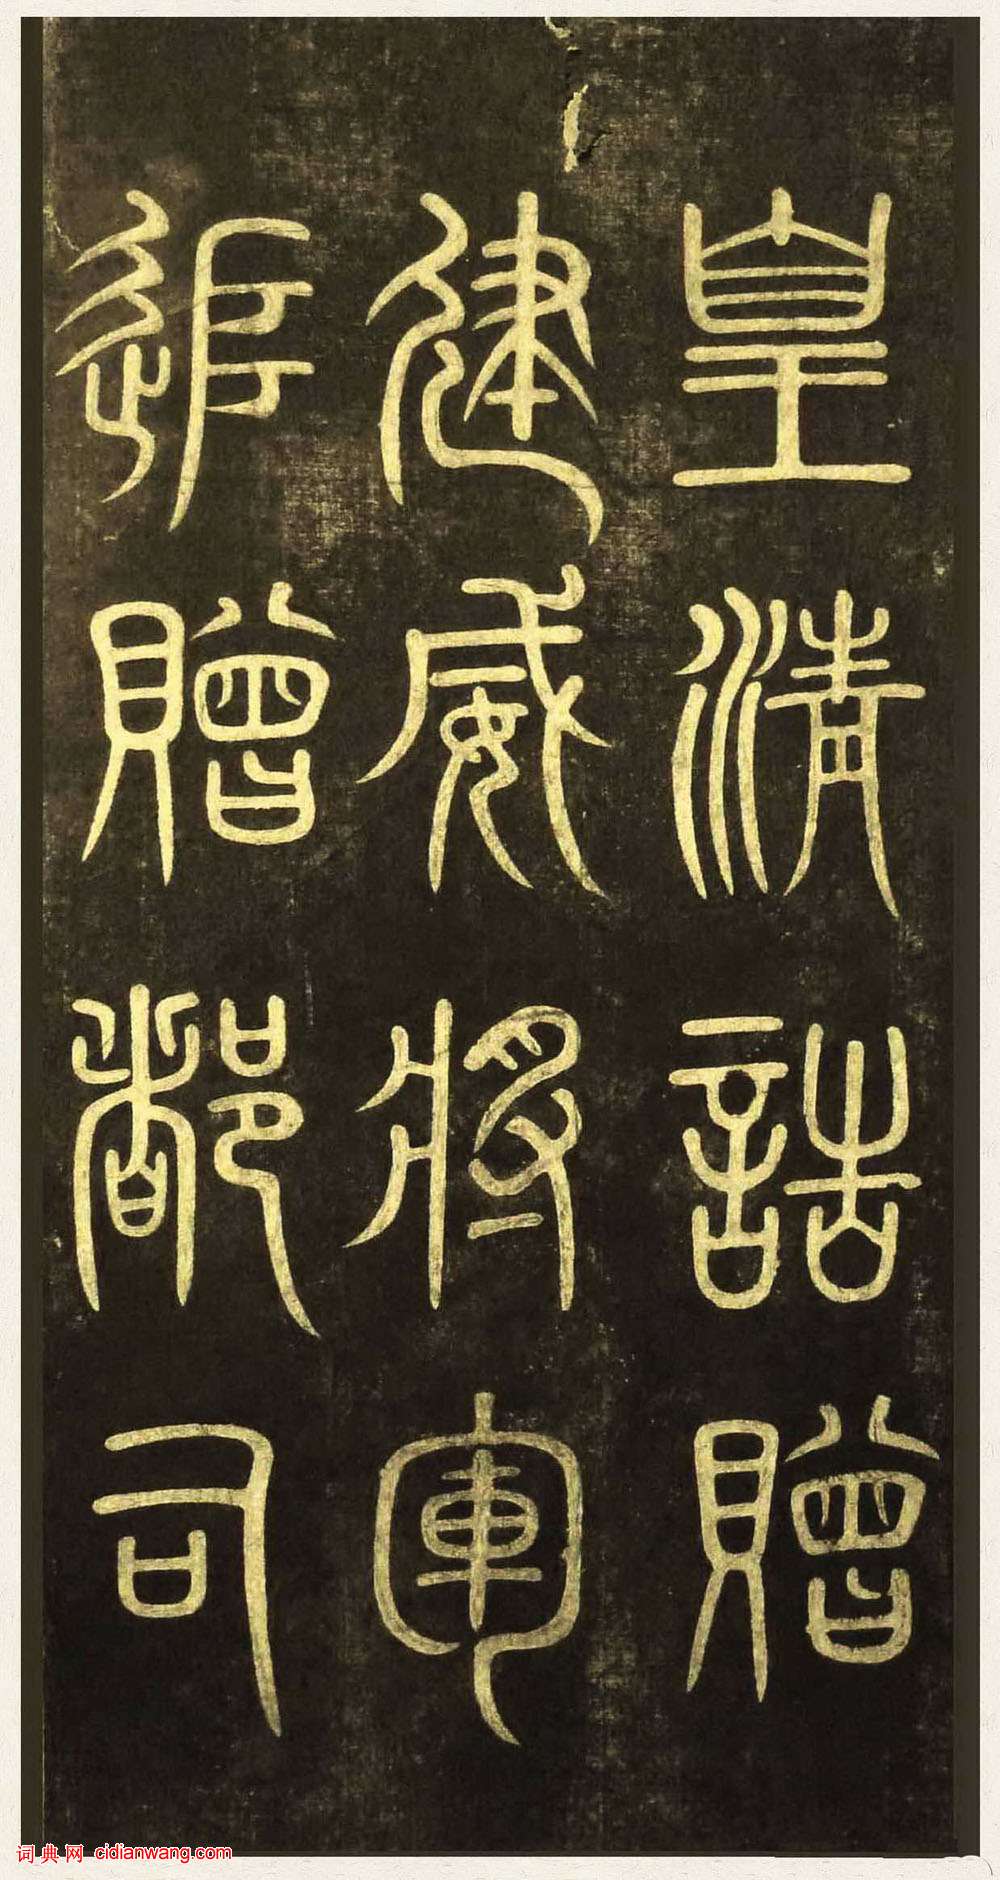 皇清誥贈
建威將軍
追贈都司
词典网 cidianwang.com